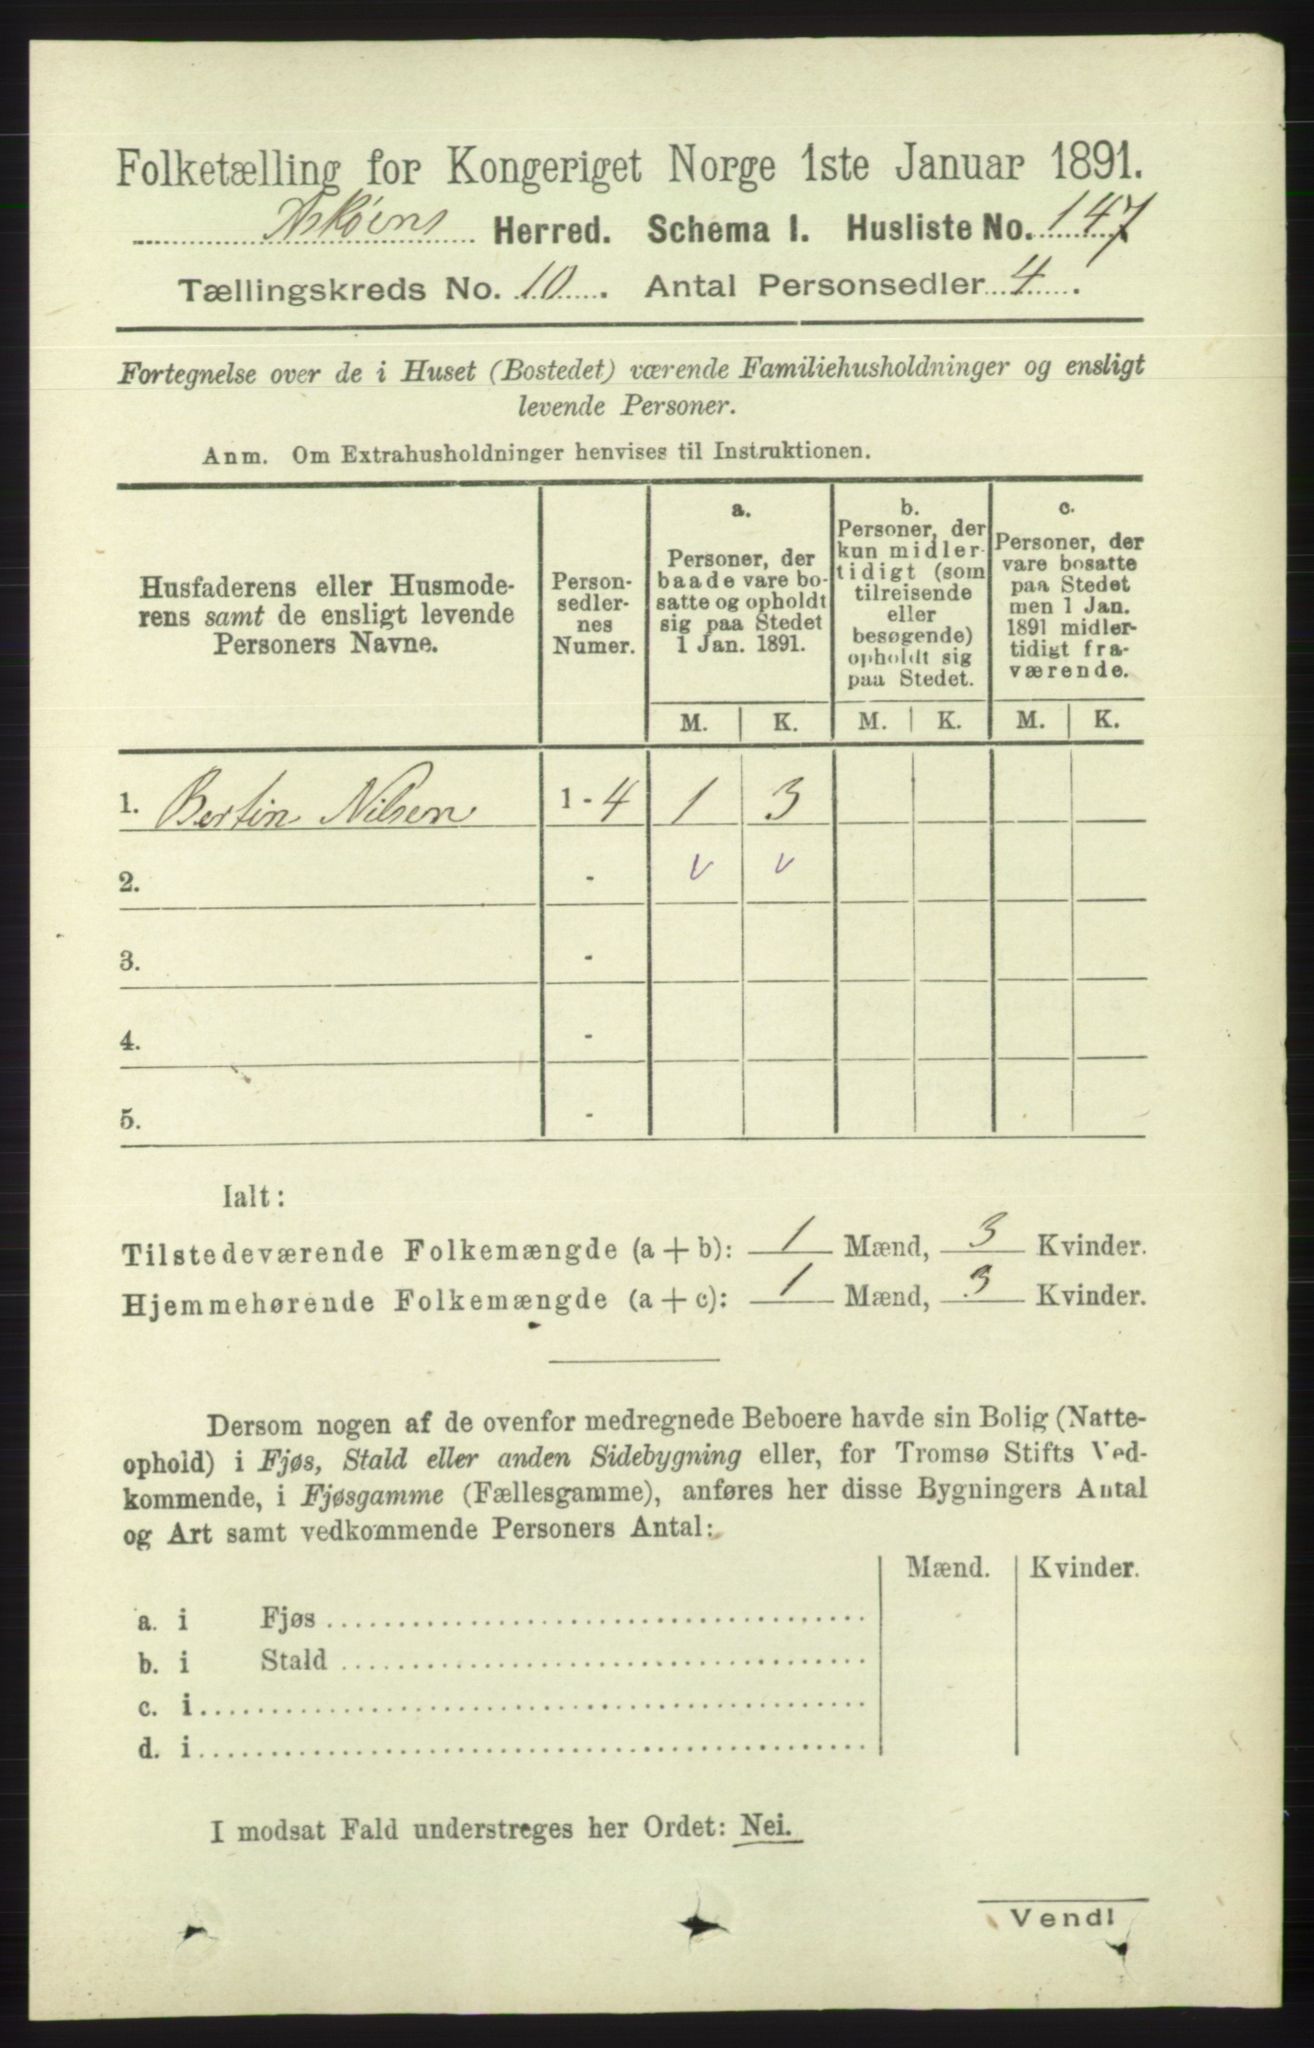 Folketælling for Kongeriget Norge 1ste Januar 1891.
Askøens Herred. Schema I. Husliste No. 147
Tællingskreds No. 10. Antal Personsedler 4.
Fortegnelse over de i Huset (Bostedet) værende Familiehusholdninger og ensligt
levende Personer.
Anm. Om Extrahusholdninger henvises til Instruktionen.
Husfaderens eller Husmode-
rens samt de ensligt levende
Personers Navne.
Person-
sedler-
nes
Numer.
a.
Personer, der
baade vare bo-
satte og opholdt
sig paa Stedet
1 Jan. 1891.
b.
Personer, der
kun midler-
tidigt (som
tilreisende
eller
besøgende)
opholdt sig
paa Stedet.
c.
Personer, der
vare bosatte
paa Stedet
men 1 Jan.
1891 midler-
tidigt fra-
værende.
M. K. M. K. M. K.
1. Bertin Nilsen 1 - 4 1 3
2. - v v
3. -
4. -
5. -
Ialt:
Tilstedeværende Folkemængde (a + b): 1 Mænd, 3 Kvinder.
Hjemmehørende Folkemængde (a + c): 1 Mænd, 3 Kvinder.
Dersom nogen af de ovenfor medregnede Beboere havde sin Bolig (Natte-
ophold) i Fjøs, Stald eller anden Sidebygning eller, for Tromsø Stifts Ved-
kommende, i Fjøsgamme (Fællesgamme), anføres her disse Bygningers Antal
og Art samt vedkommende Personers Antal:
Mænd. Kvinder.
a. i Fjøs
b. i Stald
c. i
d. i
I modsat Fald understreges her Ordet: Nei.
Vend!